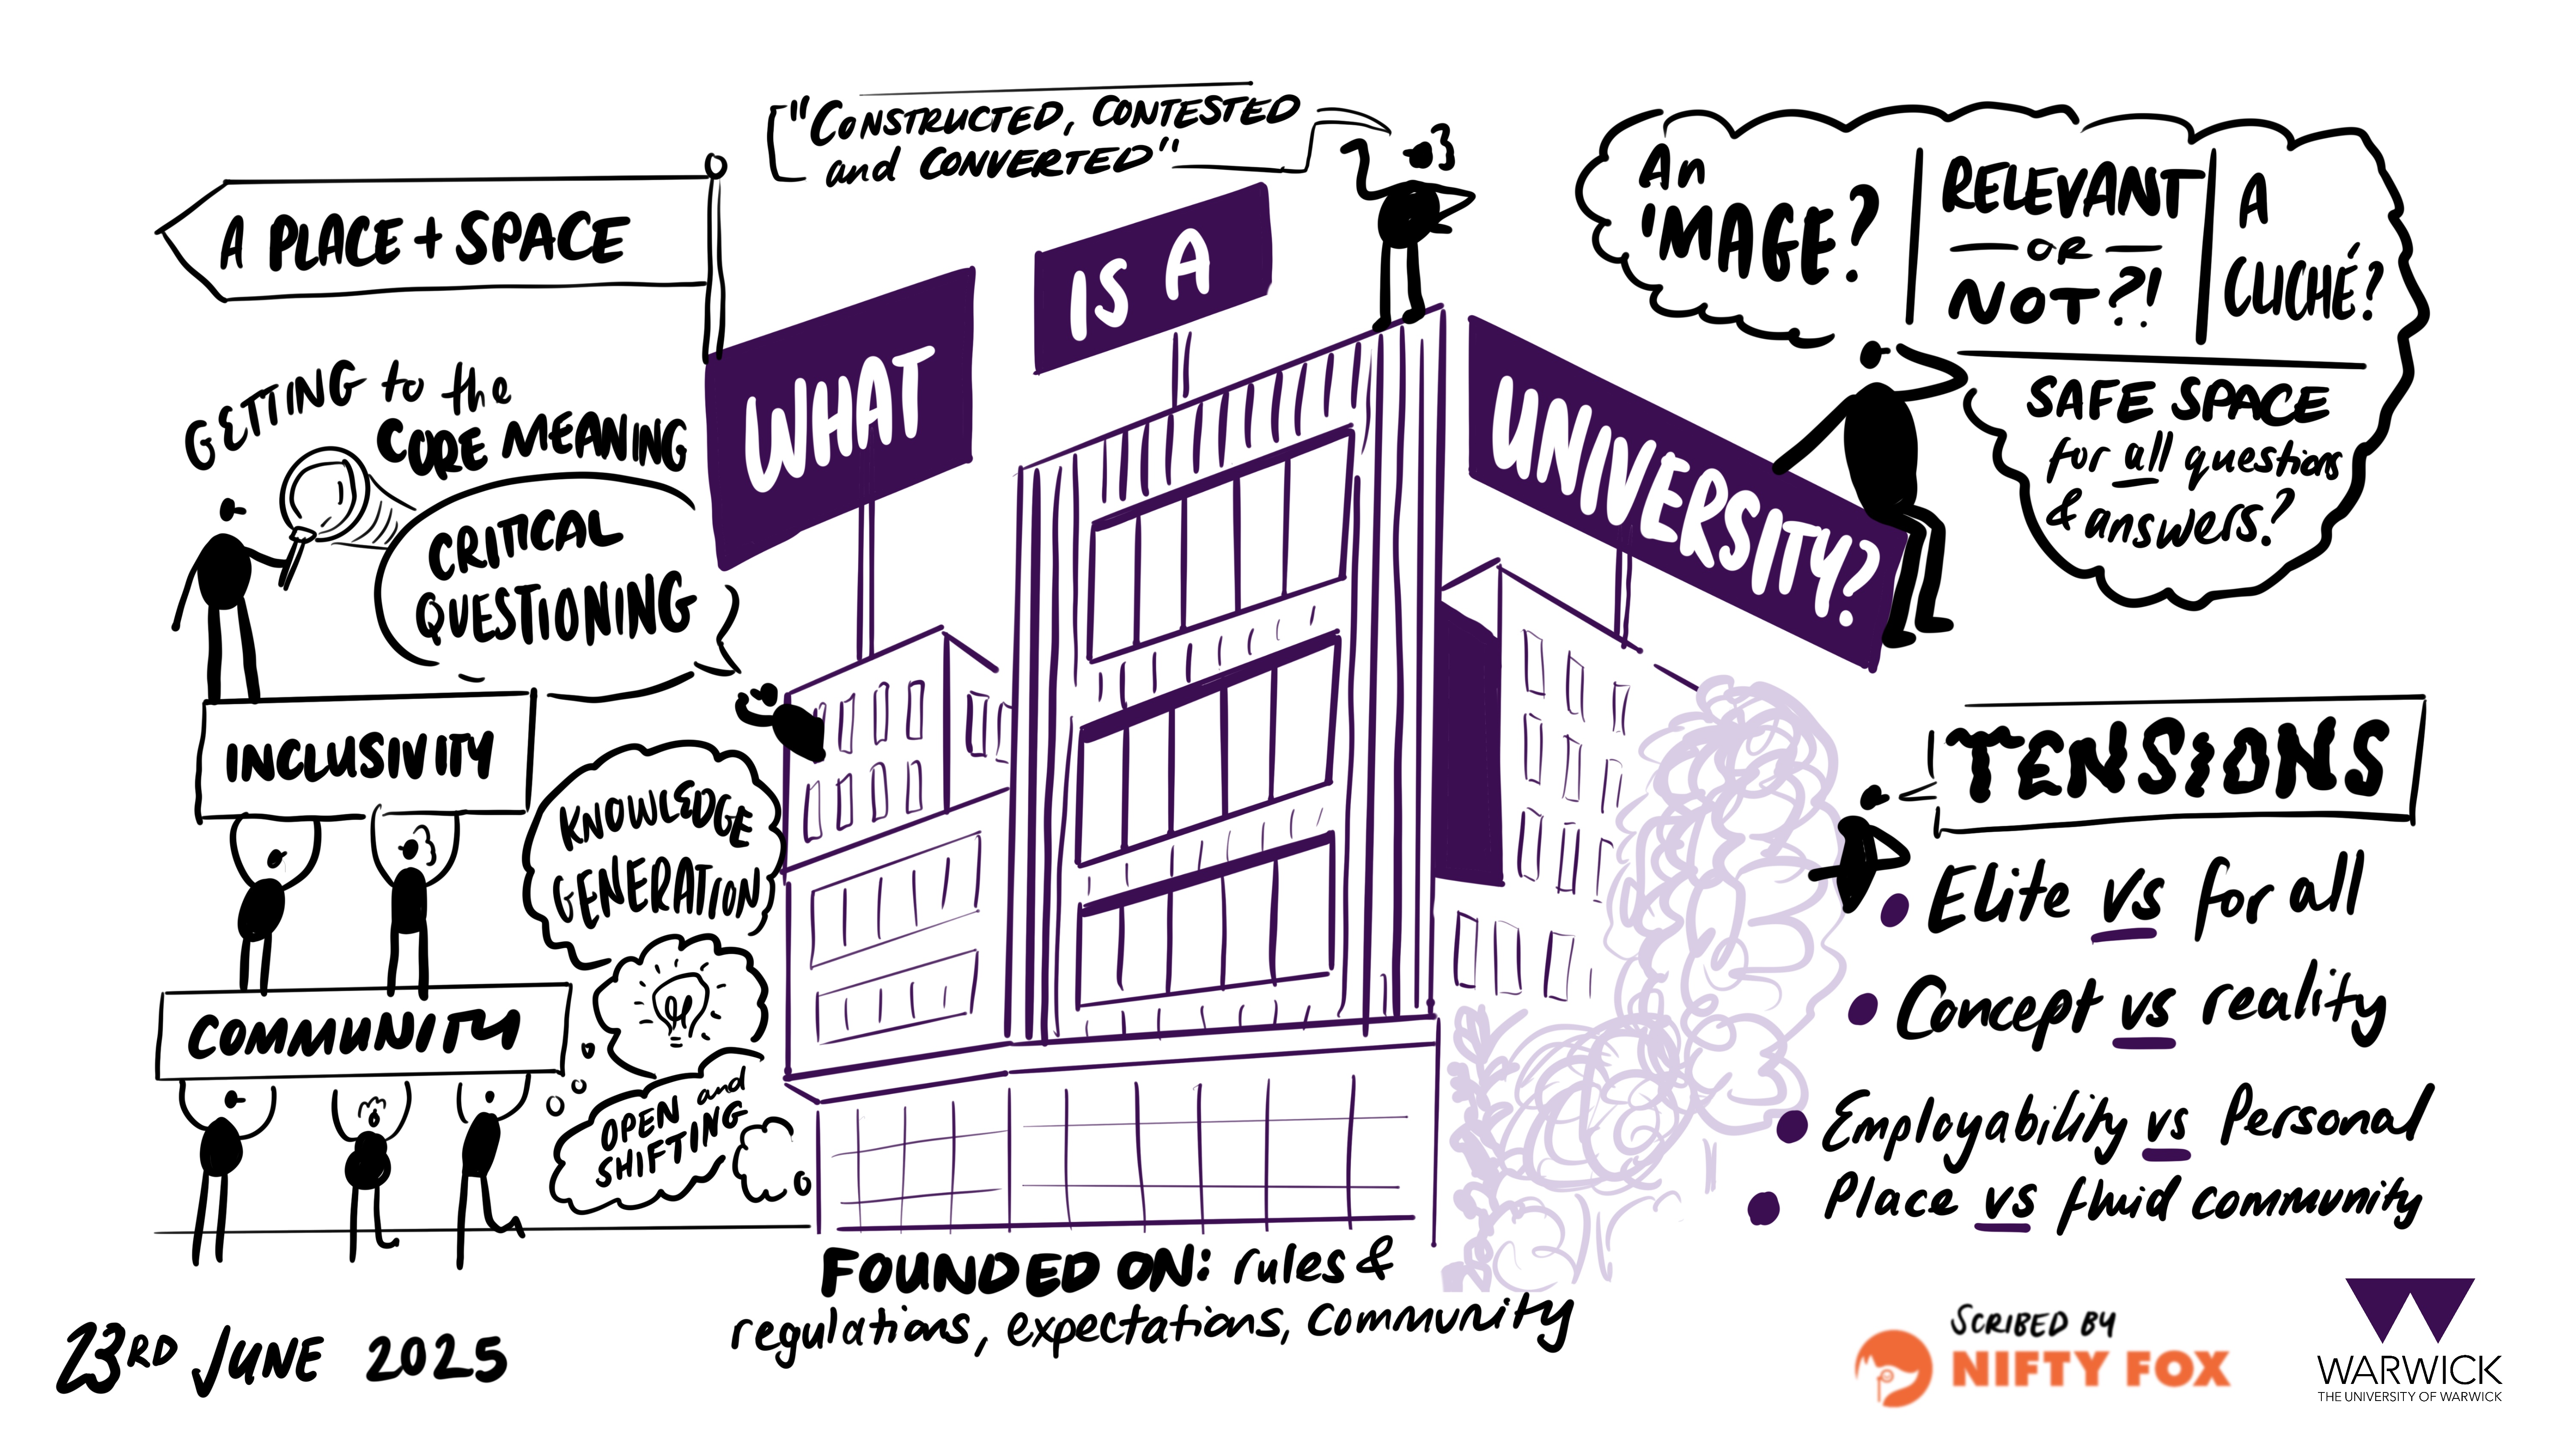 "CONSTRUCTED, CONTESTED
and CONVERTED"
A PLACE + SPACE
WHAT
IS A
UNIVERSITY?
An
IMAGE?
RELEVANT
OR
NOT?!
A
CLICHÉ?
SAFE SPACE
for all questions
& answers?
GETTING to the
CORE MEANING
CRITICAL
QUESTIONING
INCLUSIVITY
KNOWLEDGE
GENERATION
COMMUNITY
OPEN and
SHIFTING
TENSIONS
• Elite vs for all
• Concept vs reality
• Employability vs Personal
• Place vs fluid community
FOUNDED ON: rules &
regulations, expectations, community
23RD JUNE 2025
SCRIBED BY
NIFTY FOX
WARWICK
THE UNIVERSITY OF WARWICK